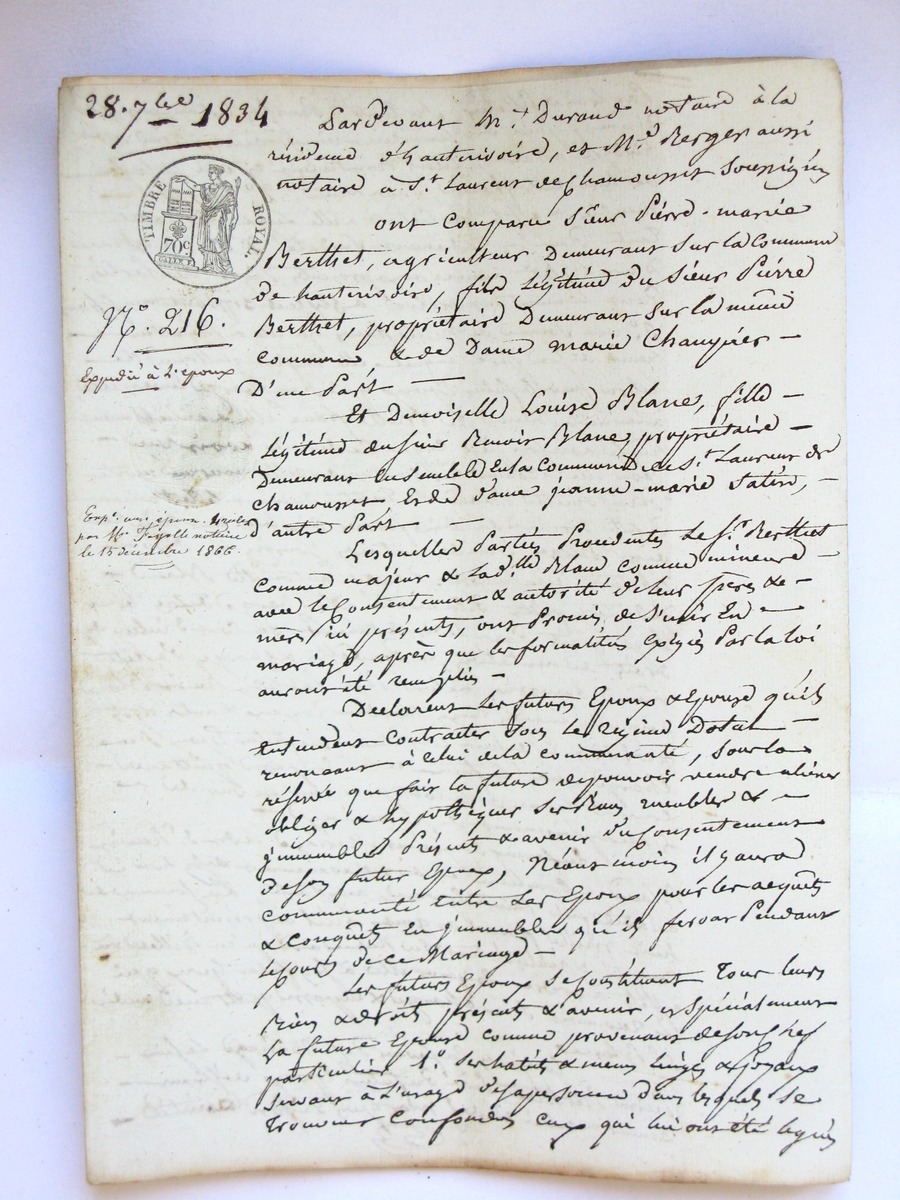 28. 7bre 1834
TIMBRE ROYAL
70 c
N.o 216.
Expédié à l'époux
par Me Fayolle notaire
le 15 décembre 1866.
Pardevant M.e Durand notaire à la
résidence d'hauterivoire, et M.e Berger aussi
notaire à S.t Laurent de Chamousset soussignés
ont Comparu Sieur Pierre-marie
Berthet, agriculteur Demeurant Sur la Commune
de hauterivoire, fils légitime du Sieur Pierre
Berthet, propriétaire Demeurant Sur la même
Commune & de Dame marie Chaupier —
D'une Part —
Et Demoiselle Louise Blanc, fille —
légitime du Sieur Benoit Blanc, propriétaire —
Demeurant Ensemble En la Commune de S.t Laurent de
Chamousset Et de dame jeanne-marie —
d'autre Part —
Lesquelles Parties Procédantes Le S.r Berthet
Comme majeur & la d.lle Blanc Comme mineure —
avec le Consentement & autorité de leurs peres & —
mères ici présents, ont Promis de S'unir En —
mariage, après que les formalités exigées Par la loi
auront été remplies —
Declarent Les futurs Epoux & Epouse qu'ils
Entendent Contracter Sous Le regime Dotal —
renonceant à Celui de la communauté, Sous la
réserve que fait la future de pouvoir vendre aliéner
obliger & hypothéquer Ses Biens meubles & —
jmmeubles Présents & avenir du Consentement
de Son futur Epoux, Néant moins il y aura
Communauté entre Les Epoux pour les acquets
& conquets En jmmeubles qu'ils feront Pendant
Le Cours de Ce Mariage —
Les futurs Epoux Se Constituent Tous leurs
Biens & droits présents & avenir, et Spécialement
La future Epouse comme provenant de Son chef
particulier 1.o Ses habits & menus linges & Joyaux
Servant à L'usage de Sa personne Dans lesquels Se
Trouvent Confondus Ceux qui lui ont été légués